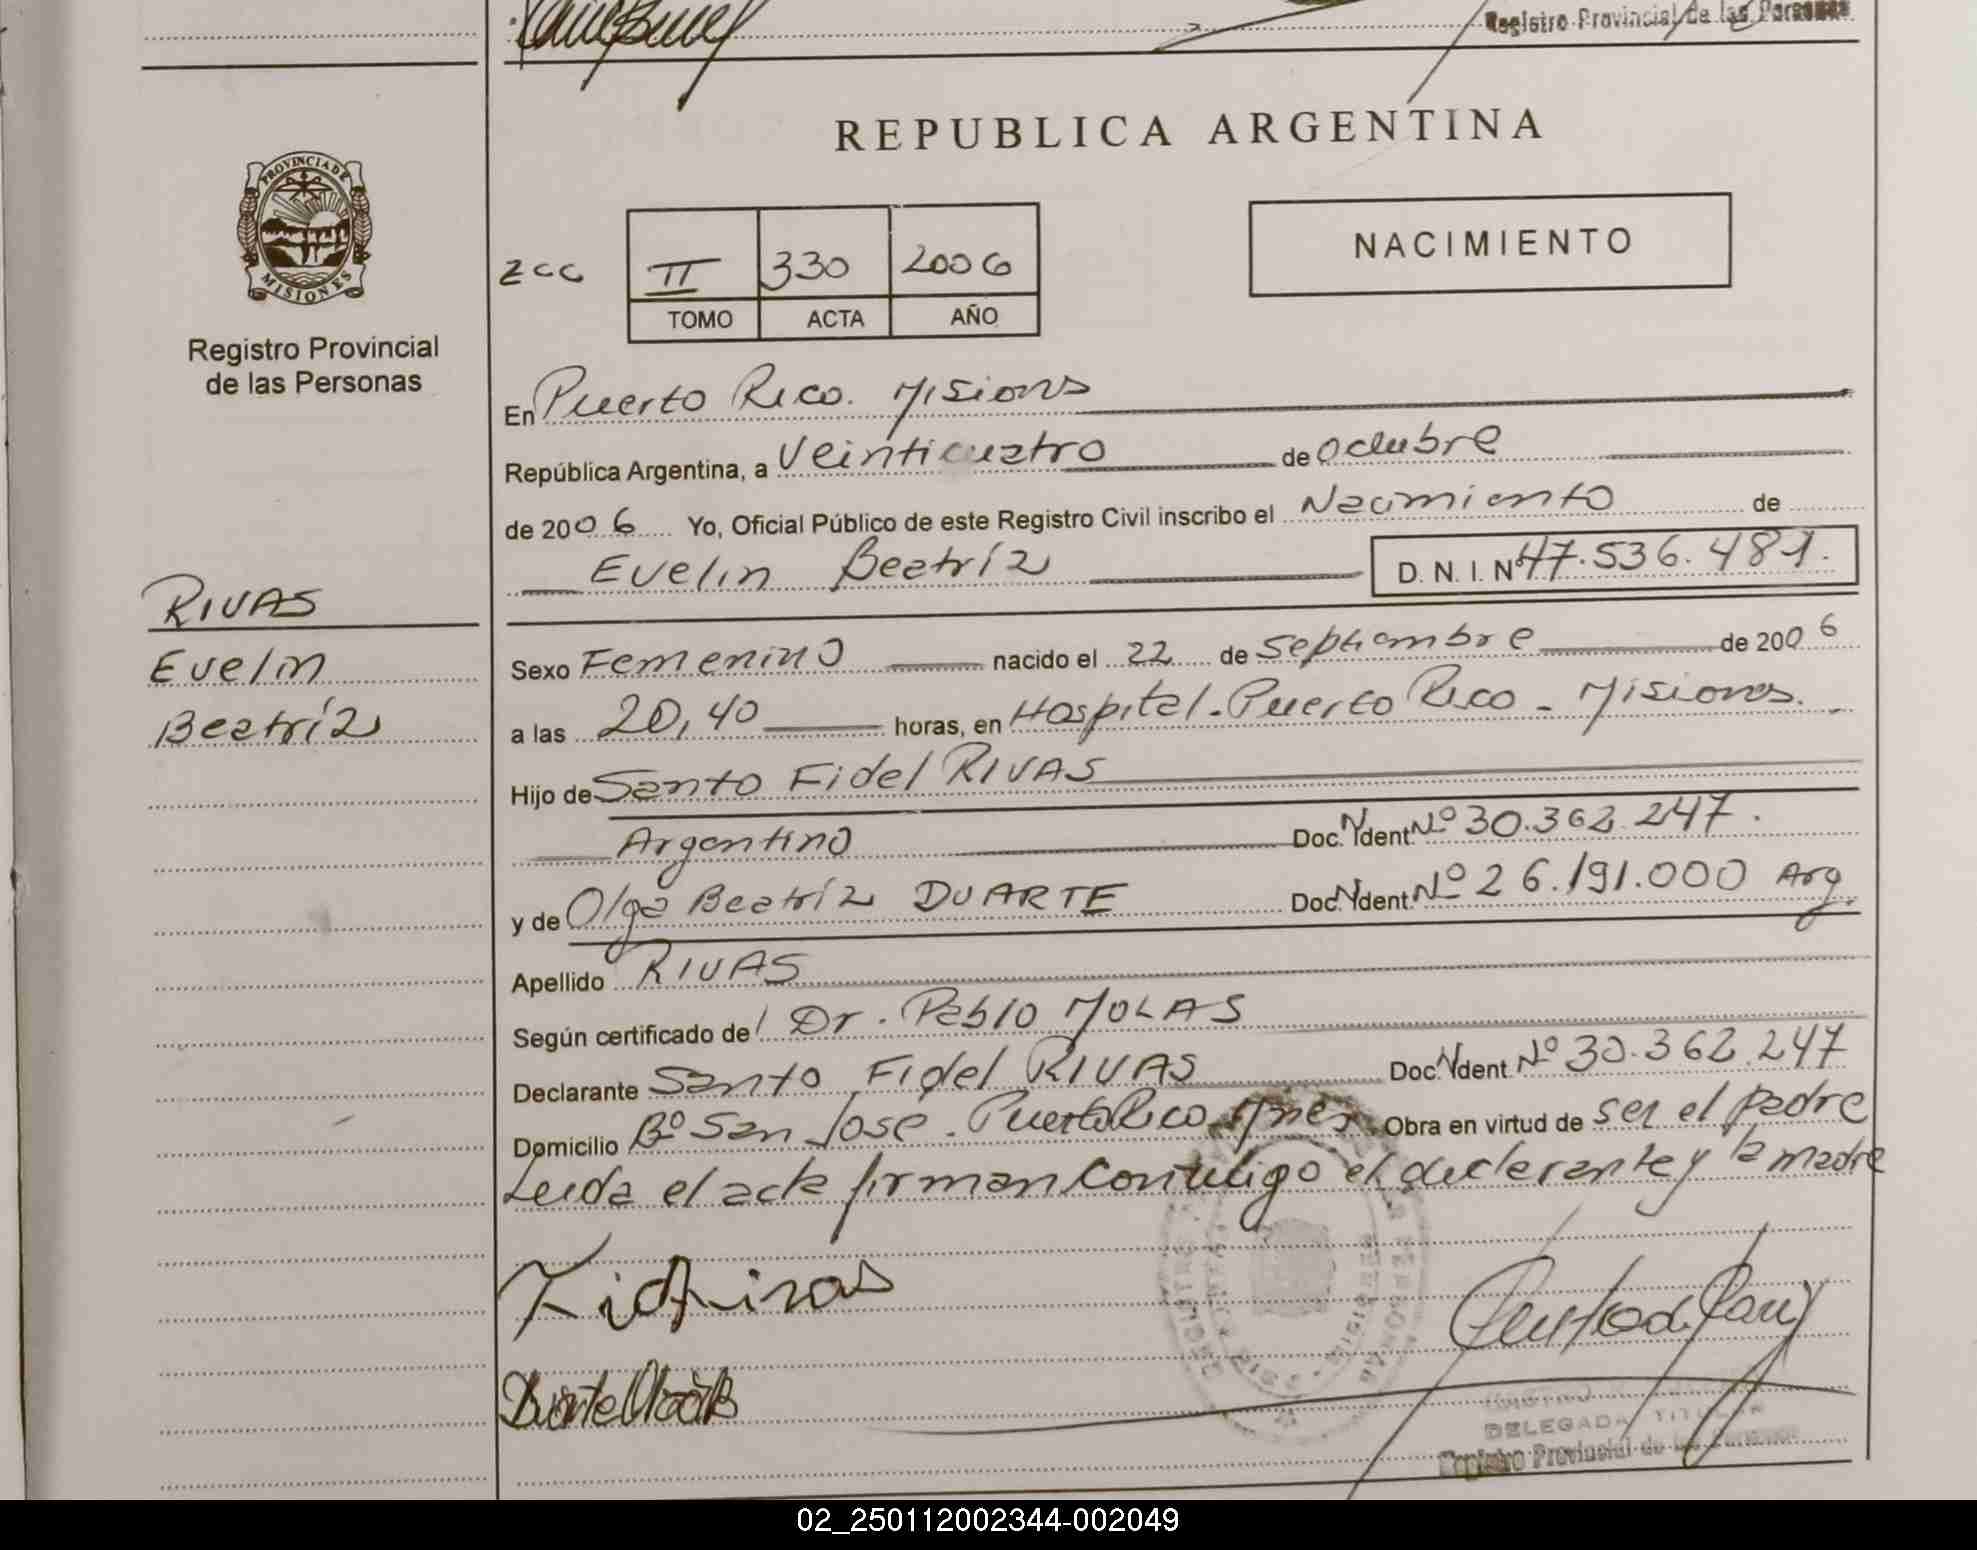 Registro Provincial de las Personas
REPUBLICA ARGENTINA
PROVINCIA DE
MISIONES
Registro Provincial
de las Personas
zcc
II 330 2006
TOMO ACTA AÑO
NACIMIENTO
En Puerto Rico. Misiones
República Argentina, a Veinticuatro de octubre
de 2006 Yo, Oficial Público de este Registro Civil inscribo el Nacimiento de
Evelin Beatríz D. N. I. Nº 47.536.481.
RIVAS
Evelin
Beatríz
Sexo Femenino nacido el 22 de septiembre de 2006
a las 20,40 horas, en Hospital. Puerto Rico - Misiones.
Hijo de Santo Fidel RIVAS
Argentino Doc. Ident. Nº 30.362.247.
y de Olga Beatríz DUARTE Doc. Ident. Nº 26.191.000 Arg.
Apellido RIVAS
Según certificado de Dr. Pablo MOLAS
Declarante Santo Fidel RIVAS Doc. Ident. Nº 30.362.247
Domicilio Bº San José. Puerto Rico Mnes. Obra en virtud de ser el padre
Leida el acta firman conmigo el declarante y la madre
DELEGADA TITULAR
Registro Provincial de las Personas
02_250112002344-002049